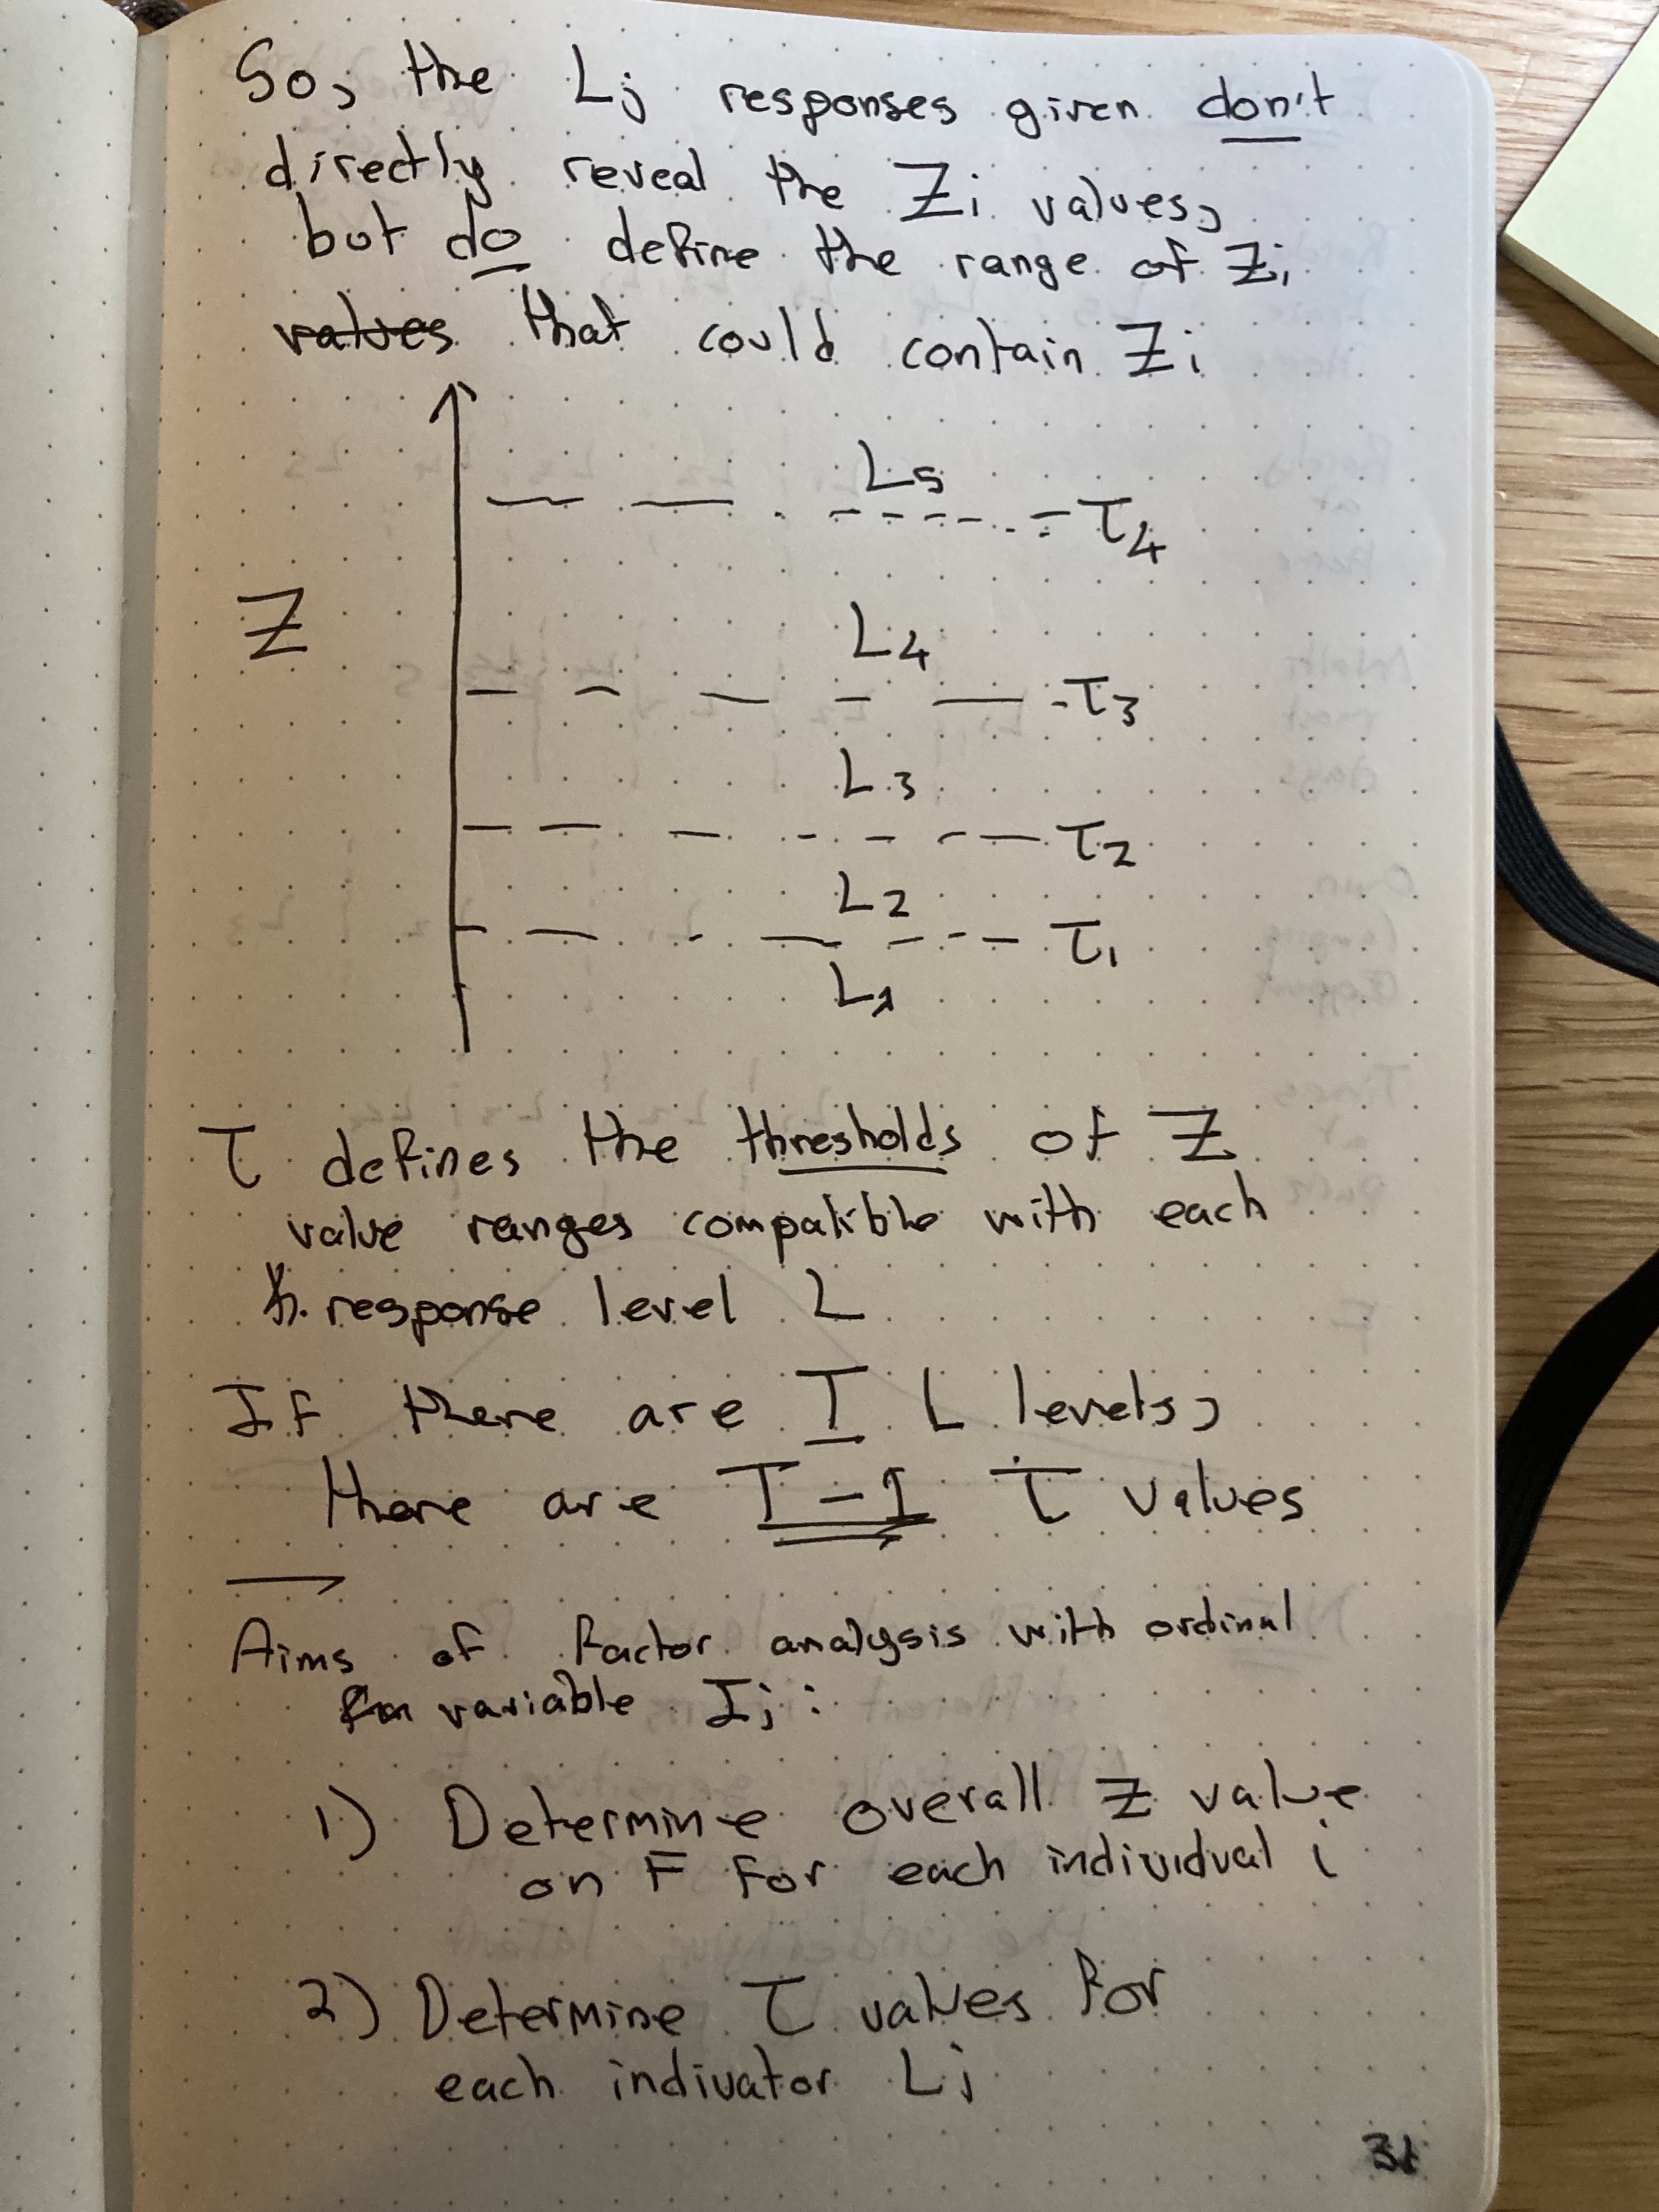 So, the Lj responses given don't
directly reveal the Zi values,
but do define the range of Zi
values that could contain Zi
L5
τ4
Z
L4
τ3
L3
τ2
L2
τ1
L1
τ defines the thresholds of Z
value ranges compatible with each
response level L
If there are T L levels,
there are T-1 τ values
Aims of factor analysis with ordinal
variable Ij:
1) Determine overall Z value
on F for each individual i
2) Determine τ values for
each indivator Lj
31